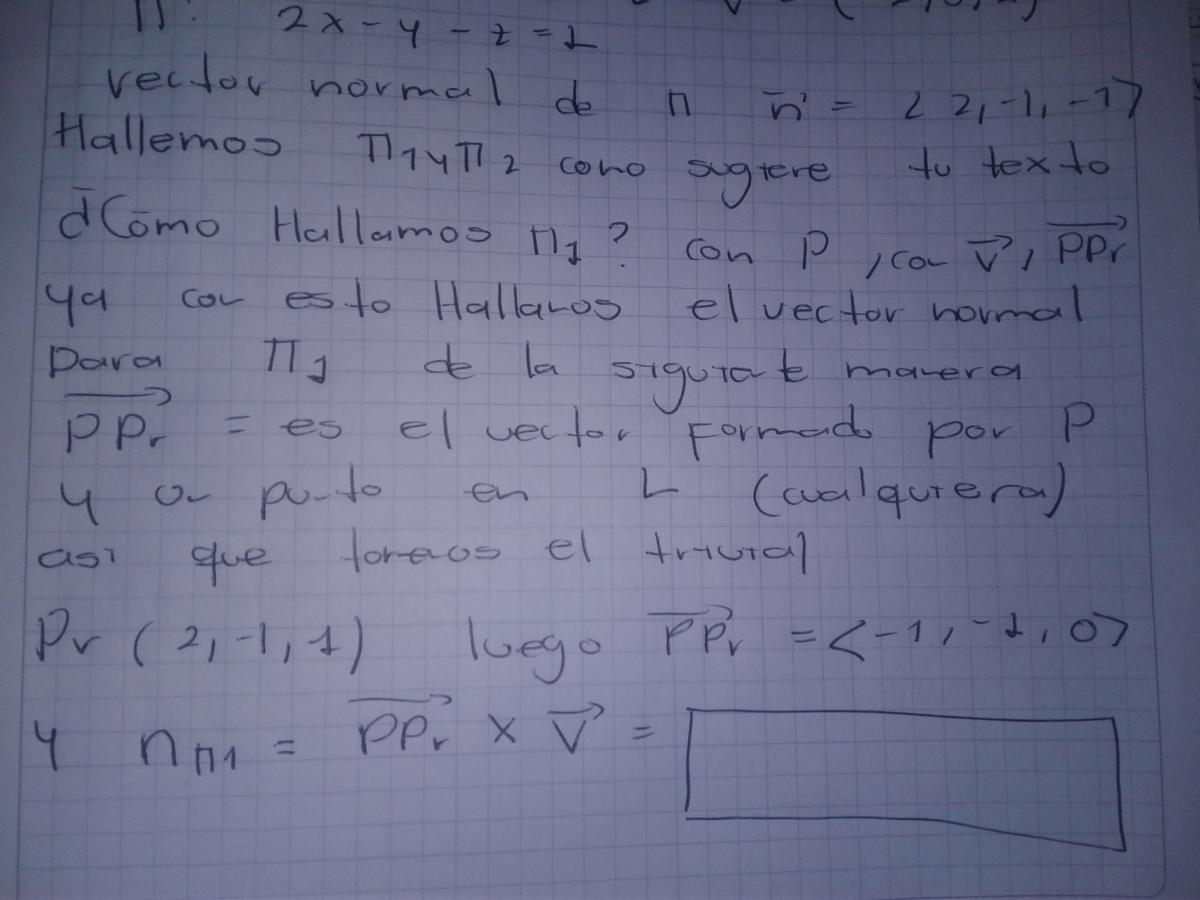 Π: 2x - y - z = 1
vector normal de Π n⃗ = ⟨2, -1, -1⟩
Hallemos Π1 y Π2 como sugiere tu texto
¿Cómo Hallamos Π1? con P, con V⃗, PPr⃗
ya con esto Hallamos el vector normal
para Π1 de la siguiente manera
PPr⃗ = es el vector formado por P
y un punto en L (cualquiera)
asi que tomemos el trivial
Pr (2, -1, 1) luego PPr⃗ = <-1, -1, 0>
y nΠ1 = PPr⃗ × V⃗ =